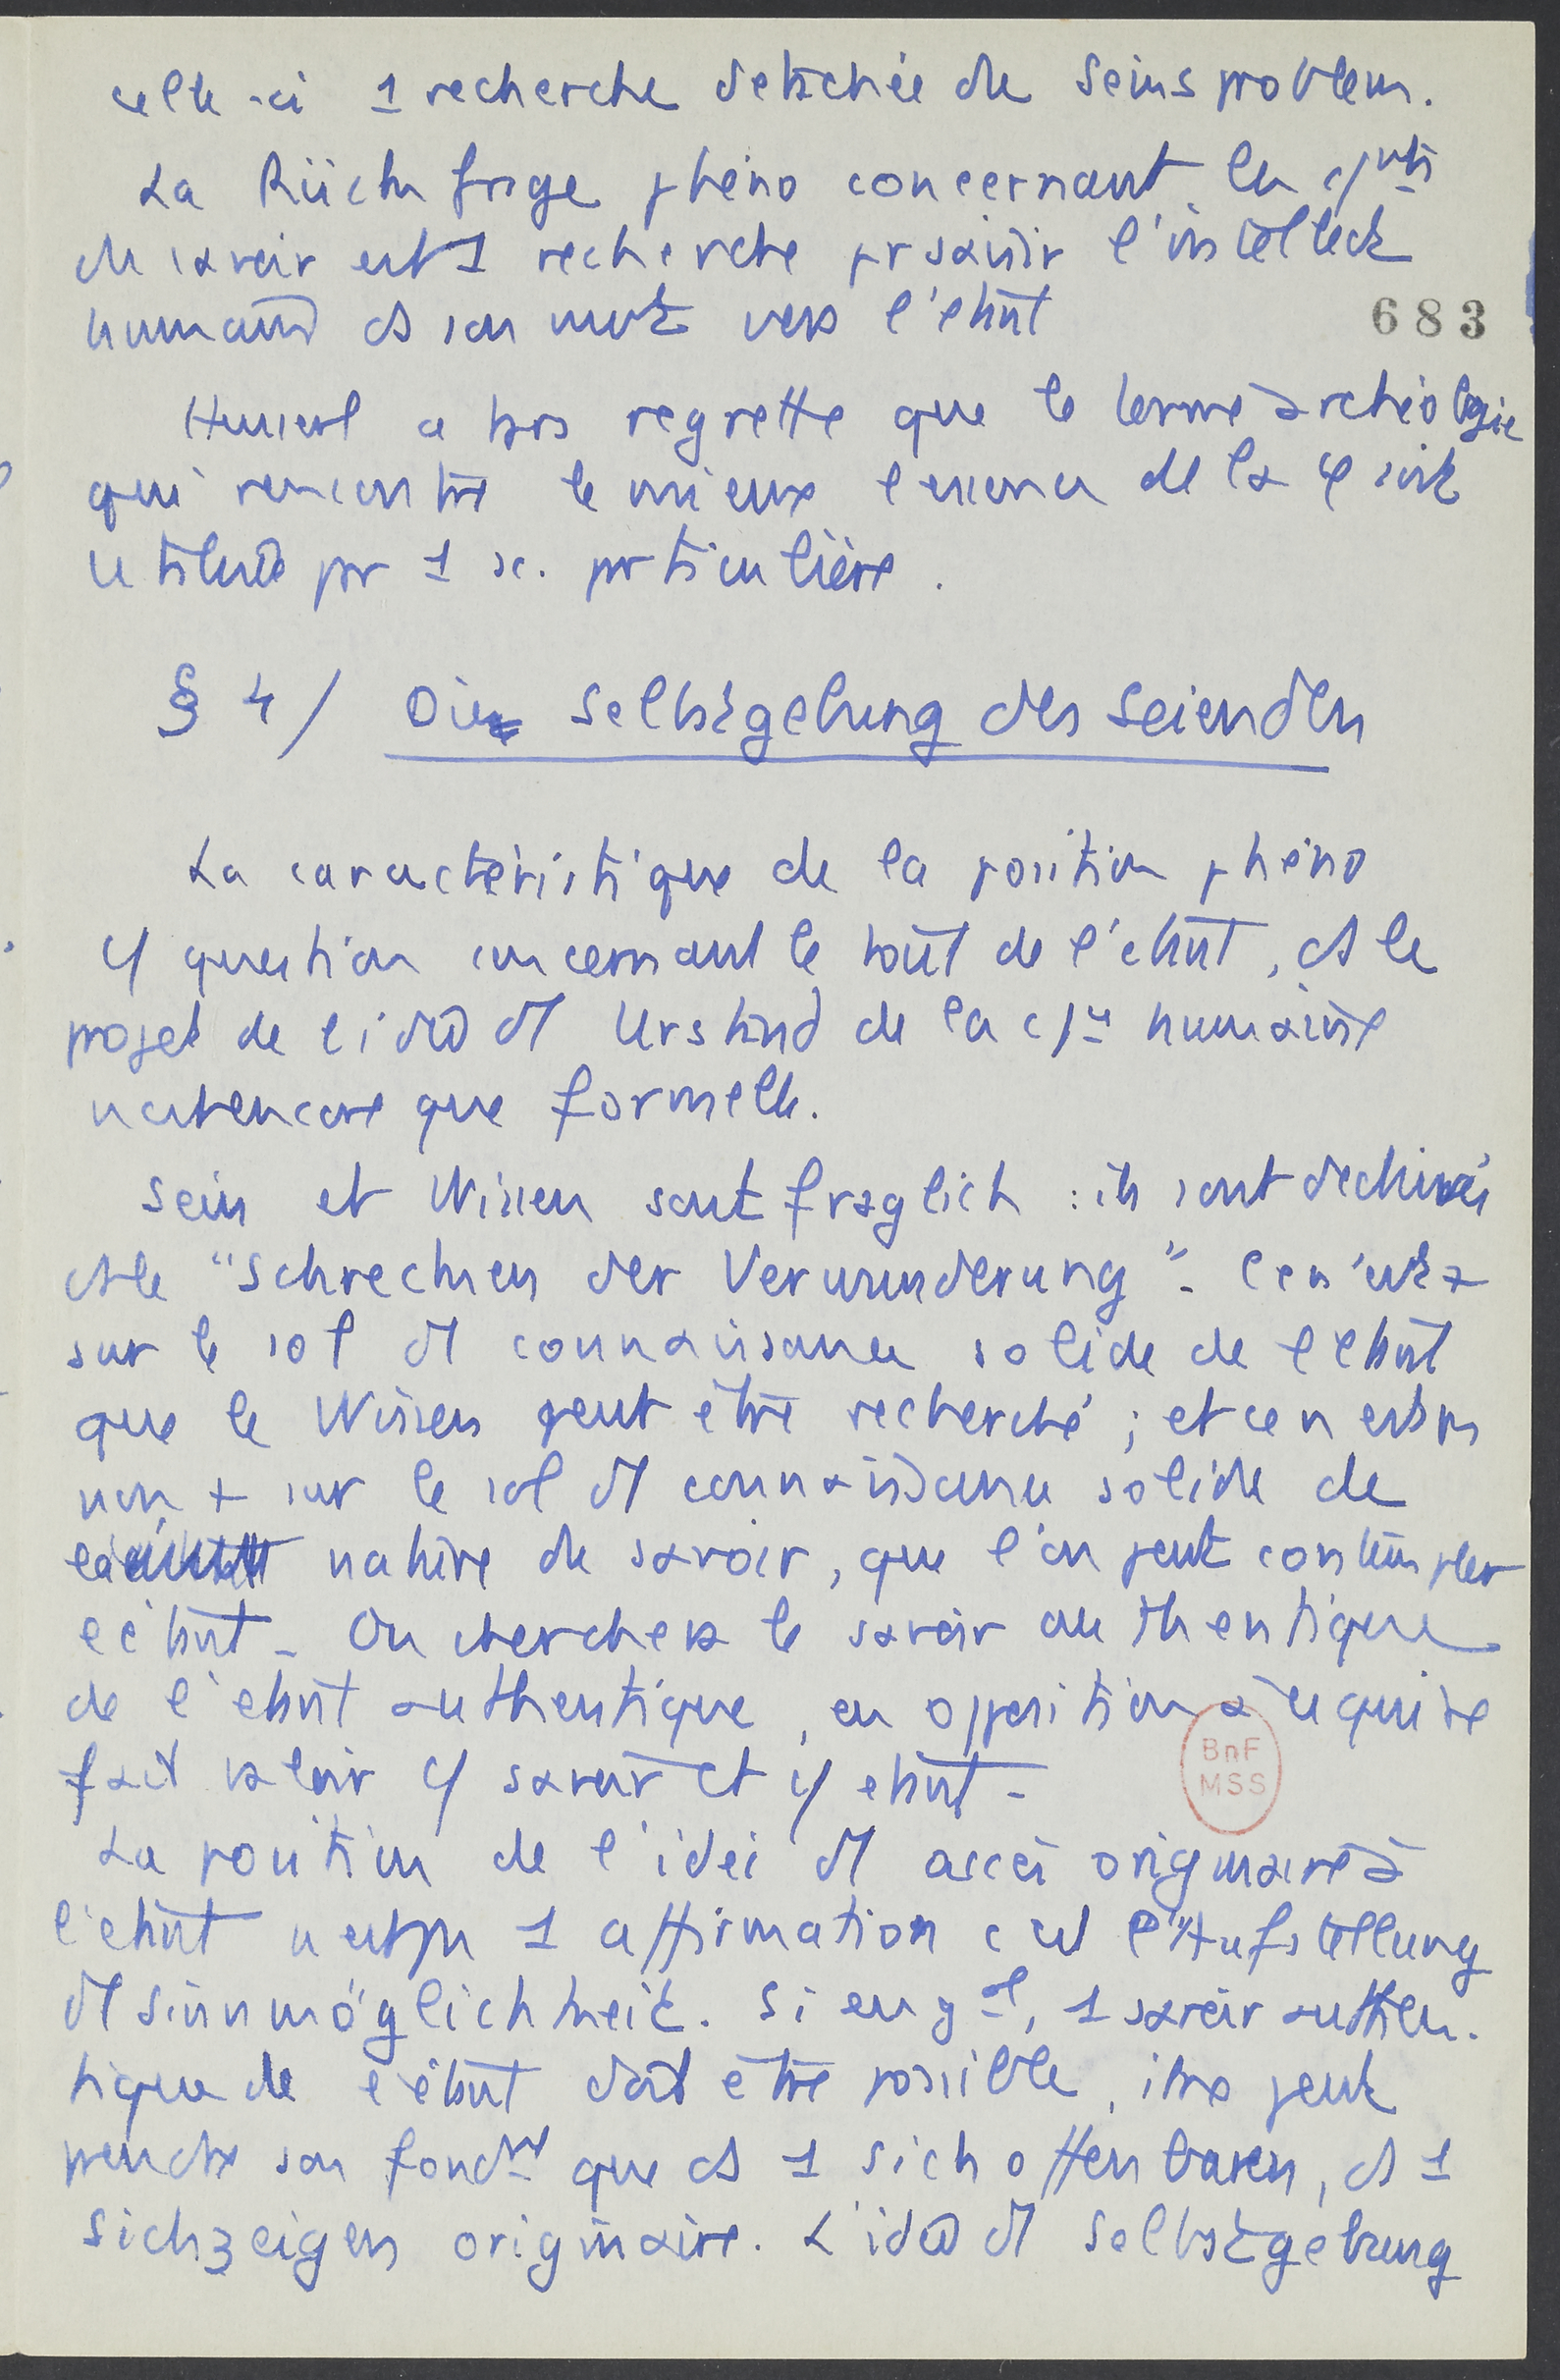 celle-ci 1 recherche détachée du Seinsproblem.
La Rückfrage phéno concernant le
du savoir est 1 recherche pr saisir l'intellect
humain ds son mvt vers l'étant
683
Husserl a tjrs regretté que le terme archéologie
qui rencontre le mieux l'essence de la φ soit
utilisé par 1 sc. particulière.
§ 4/ Die Selbstgebung des Seienden
La caractéristique de la position phéno
c/ question concernant le tout de l'étant, ds le
projet de l'idée d'1 Urstand de la humaine
n'est encore que formelle.
Sein et Wissen sont fraglich : ils sont
ds le "Schrecken der Verwunderung". Ce n'est pas
sur le sol d'1 connaissance solide de l'étant
que le Wissen peut être recherché ; et ce n'est pas
non + sur le sol d'1 connaissance solide de
la nature du savoir, que l'on peut contempler
l'étant - On cherchera le savoir authentique
de l'étant authentique, en opposition à ce qui se
fait valoir c/ savoir et c/ étant -
BnF
MSS
La position de l'idée d'1 accès originaire à
l'étant n'est pas 1 affirmation c'est l'Aufstellung
d'1 Sinnmöglichkeit. Si en gal, 1 savoir authen-
tique de l'étant doit être possible, il ne peut
prendre son fondmt que ds 1 Sichoffenbaren, ds 1
Sichzeigen originaire. L'idée d'1 Selbstgebung